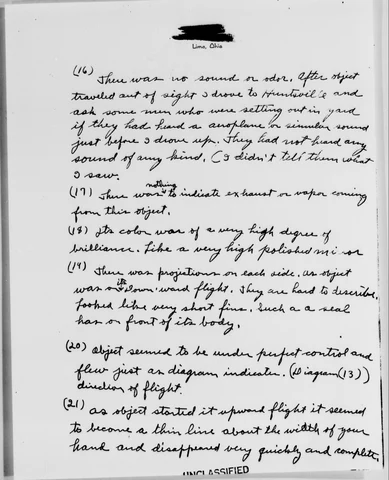 Lima, Ohio
(16)
There was no sound or odor. After object
traveled out of sight I drove to Huntsvil'e and
ask some men who were setting out in yard
if they had heard a aeroplane or simular sound
just before I drove up. They had not heard any
sound of any kind. (I didn't tell them what
I saw.
(17) There was nothing to indicate exhaust or vapor coming
from this object.
(18) Its color was of a very high degree of
brilliance. Like a very high polished mi or
(19) There was projections on each side. as object
was on its down-ward flight. They are hard to describe.
looked like very short fins. Such a a seal
has on front of its body.
(20) object seemed to be under perfect control and
flew just as diagram indicates. (Diagram (13))
direction of flight.
(21) as object started it upward flight it seemed
to become a thin line about the width of your
hand and disappeared very quickly and complete.
UNCLASSIFIED